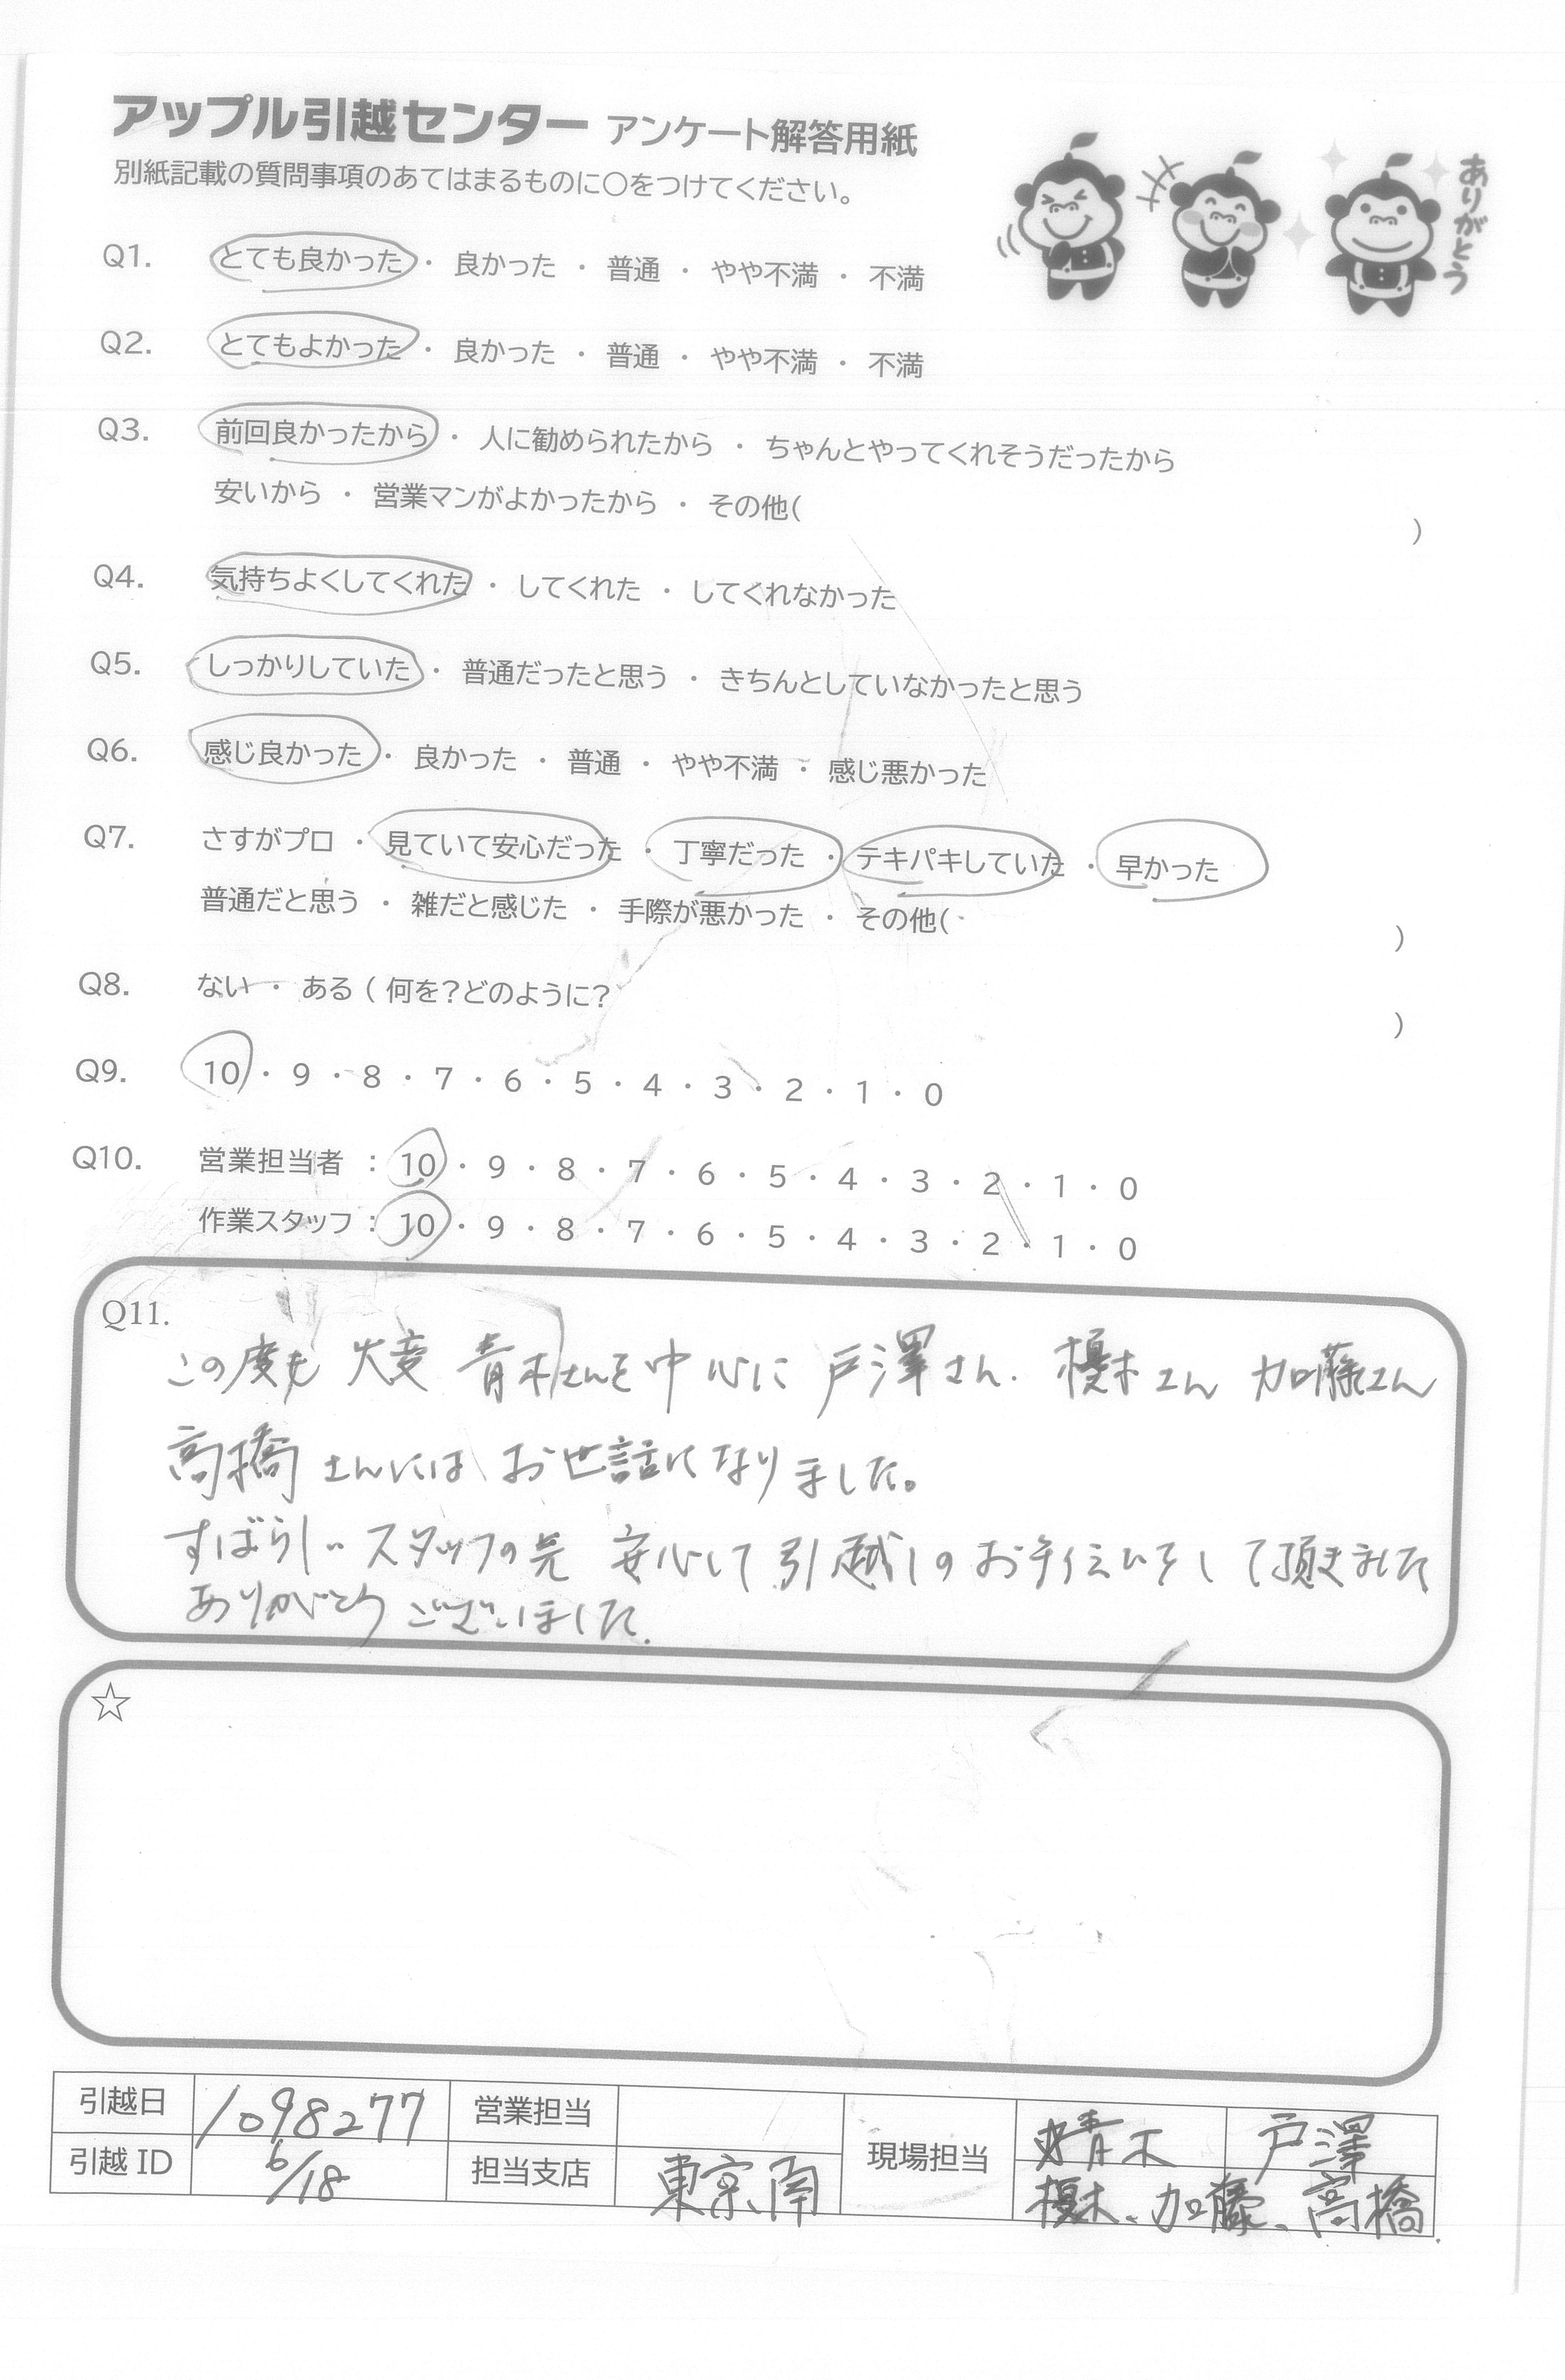 アップル引越センター アンケート解答用紙
別紙記載の質問事項のあてはまるものに○をつけてください。
ありがとう
Q1. とても良かった ・ 良かった ・ 普通 ・ やや不満 ・ 不満
Q2. とてもよかった ・ 良かった ・ 普通 ・ やや不満 ・ 不満
Q3. 前回良かったから ・ 人に勧められたから ・ ちゃんとやってくれそうだったから
安いから ・ 営業マンがよかったから ・ その他( )
Q4. 気持ちよくしてくれた ・ してくれた ・ してくれなかった
Q5. しっかりしていた ・ 普通だったと思う ・ きちんとしていなかったと思う
Q6. 感じ良かった ・ 良かった ・ 普通 ・ やや不満 ・ 感じ悪かった
Q7. さすがプロ ・ 見ていて安心だった ・ 丁寧だった ・ テキパキしていた ・ 早かった
普通だと思う ・ 雑だと感じた ・ 手際が悪かった ・ その他( )
Q8. ない ・ ある ( 何を?どのように? )
Q9. 10 ・ 9 ・ 8 ・ 7 ・ 6 ・ 5 ・ 4 ・ 3 ・ 2 ・ 1 ・ 0
Q10. 営業担当者 : 10 ・ 9 ・ 8 ・ 7 ・ 6 ・ 5 ・ 4 ・ 3 ・ 2 ・ 1 ・ 0
作業スタッフ : 10 ・ 9 ・ 8 ・ 7 ・ 6 ・ 5 ・ 4 ・ 3 ・ 2 ・ 1 ・ 0
Q11.
この度も 大変 青木さんを中心に 戸澤さん. 榎木さん 加藤さん
高橋さんには お世話になりました。
すばらしいスタッフの元 安心して引越しのお手伝いをして頂きました
ありがとうございました.
☆
引越日 1098277 営業担当 現場担当 青木 戸澤
引越 ID 6/18 担当支店 東京南 榎木、加藤、高橋